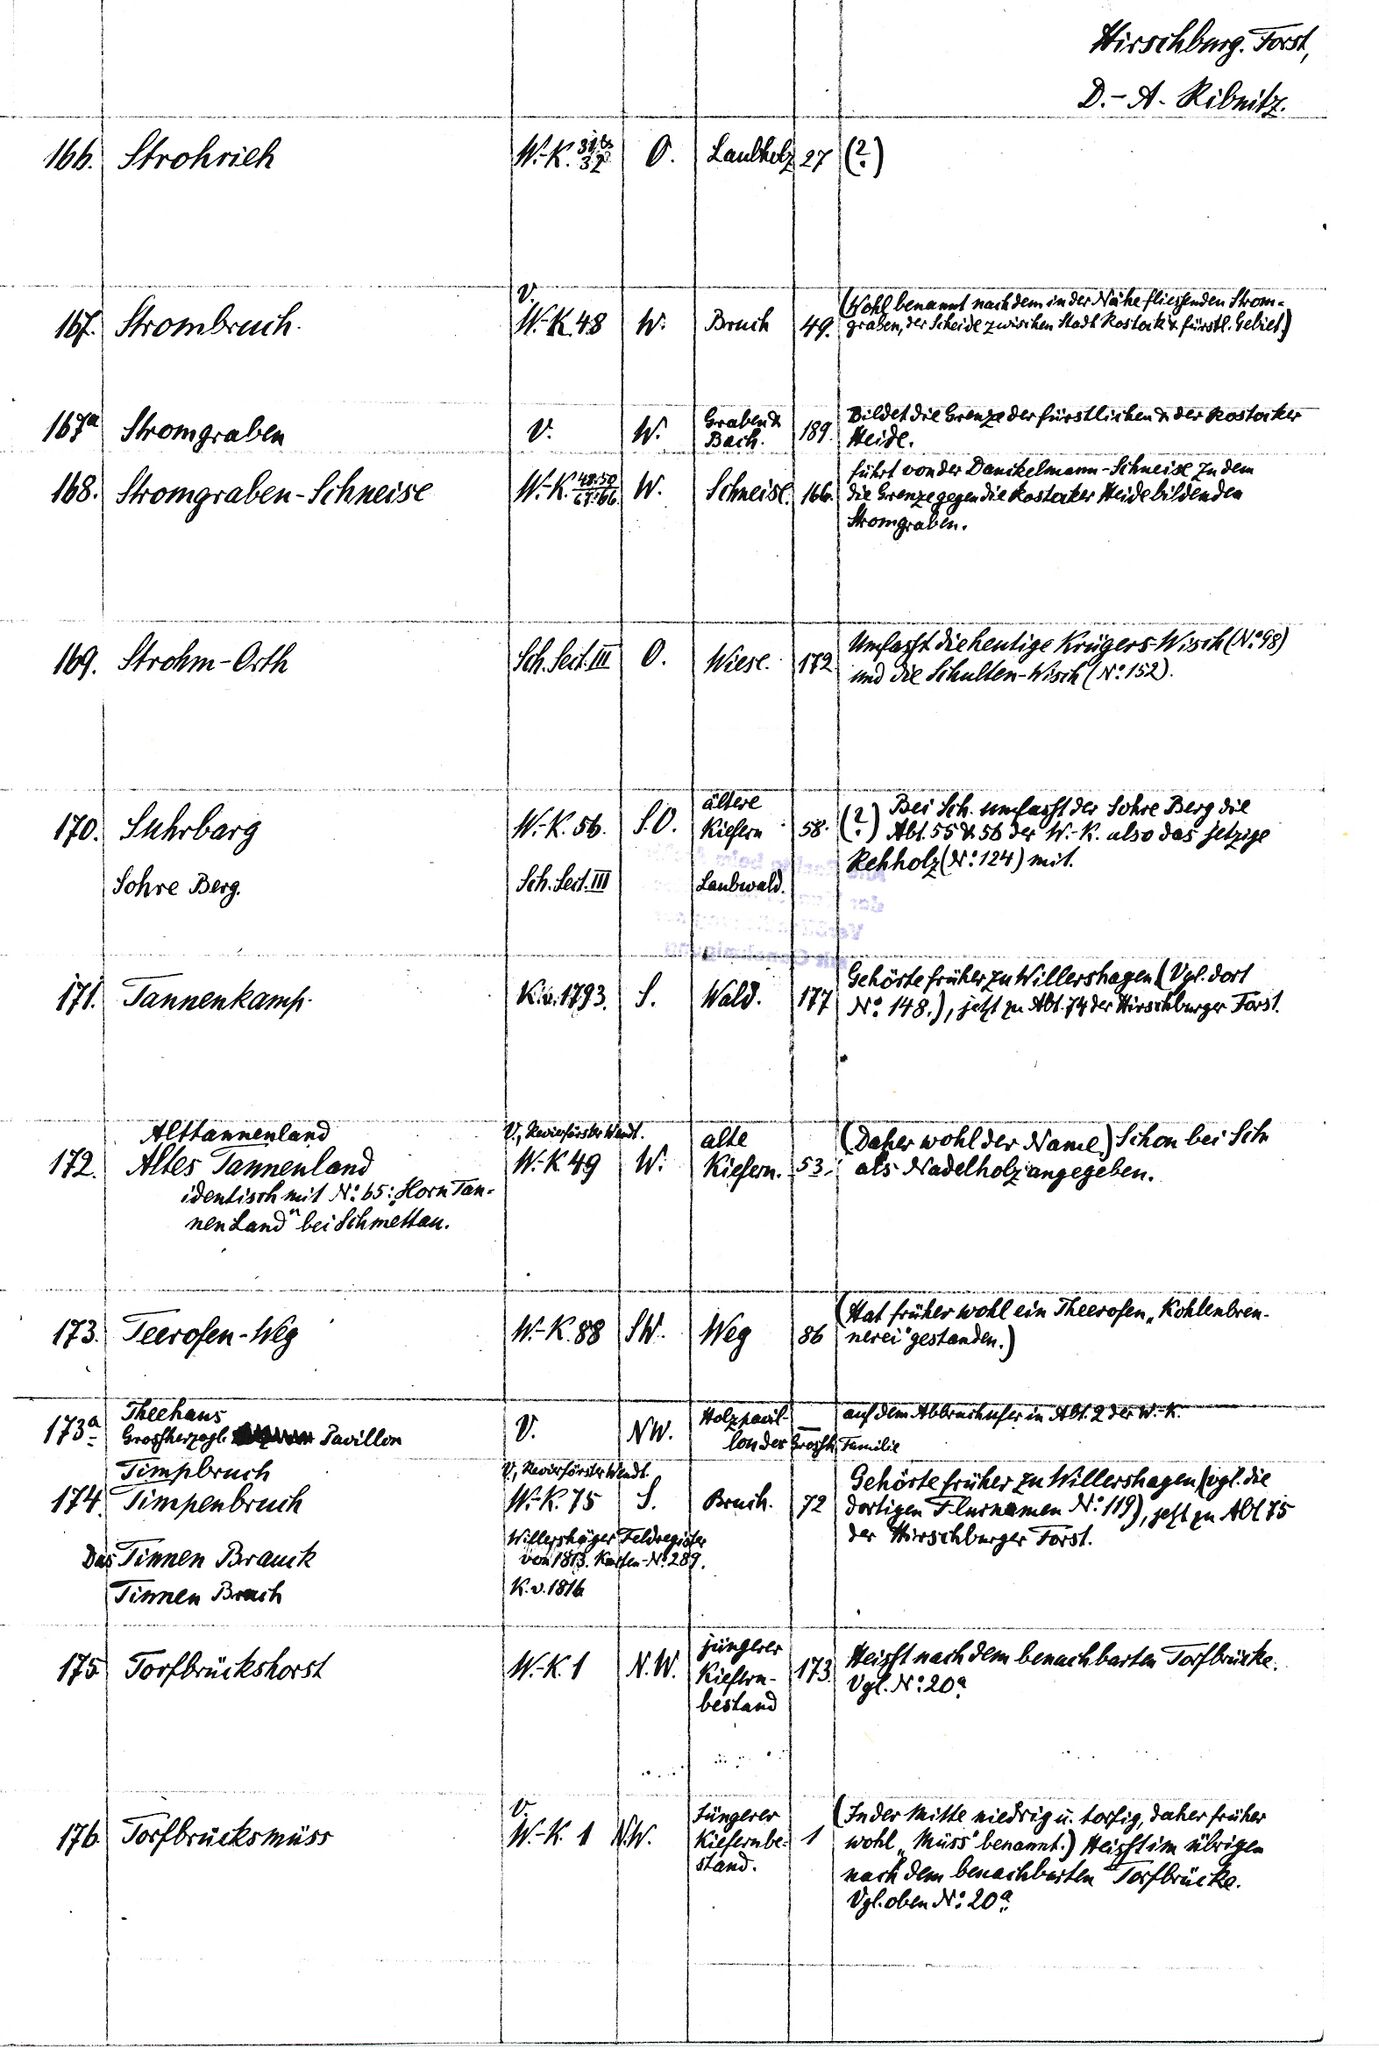 Hirschburg. Forst,
D.-A. Ribnitz.
166. Strohrieh W.-K. 31 & 32 O. Laubholz 27 (?)
V.
167. Strombruch. W.-K. 48 W. Bruch 49. (Wohl benannt nach dem in der Nähe fliessenden Strom-
graben, der Scheide zwischen Stadt Rostock & fürstl. Gebiet.)
167a Stromgraben V. W. Graben & Bach. 189. Bildet die Grenze der fürstlichen & der Rostocker
Heide.
168. Stromgraben-Schneise W.-K. 48:50 / 67:66. W. Schneise. 166. führt von der Danckelmann-Schneise zu dem
die Grenze gegen die Rostocker Heide bildenden
Stromgraben.
169. Strohm-Orth Sch. Sect. III O. Wiese. 172 Umfasst die heutige Krügers-Wisch (No. 98)
und die Schulten-Wisch (No. 152).
170. Suhrbarg W.-K. 56. S.O. ältere Kiefern 58. (?) Bei Sch. umfasst der Sohre Berg die
Abt. 55 & 56 der W.-K. also das jetzige
Rehholz (No. 124) mit.
Sohre Berg. Sch. Sect. III Laubwald.
171. Tannenkamp. K. v. 1793. S. Wald. 177 Gehörte früher zu Willershagen (Vgl. dort
No. 148.), jetzt zu Abt. 74 der Hirschburger Forst.
Alttannenland V., Revierförster Wendt.
172. Altes Tannenland W.-K 49 W. alte Kiefern. 53. (Daher wohl der Name.) Schon bei Sch.
als Nadelholz angegeben.
identisch mit No. 65: „Horn Tan-
nen Land" bei Schmettau.
173. Teerofen-Weg W.-K. 88 SW. Weg 86 (Hat früher wohl ein Theerofen „Kohlenbren-
nerei" gestanden.)
173a. Theehaus V. NW. Holzpavil- — auf dem Abbruchufer in Abt. 2 der W.-K.
Grossherzogl. Pavillon lon der Grossh. Familie
Timpbruch V., Revierförster Wendt.
174. Timpenbruch W.-K. 75 S. Bruch. 72 Gehörte früher zu Willershagen (vgl. die
dortigen Flurnamen No. 119), jetzt zu Abt. 75
der Hirschburger Forst.
Das Tinnen Brauck Willershäger Feldregister
von 1813. Karten-No. 289.
Tinnen Bruch K. v. 1816
175 Torfbrückshorst W.-K 1 N.W. jüngerer Kiefern-
bestand 173. Heisst nach dem benachbarten Torfbrücke.
Vgl. No. 20a.
V.
176 Torfbrücksmüss W.-K. 1 N.W. Jüngerer Kiefernbe-
stand. 1 (In der Mitte niedrig u. torfig, daher früher
wohl „Müss" benannt.) Heisst im übrigen
nach dem benachbarten Torfbrücke.
Vgl. oben No. 20a.